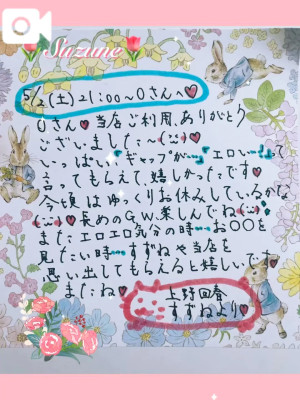 Suzune
5/2(土)21:00〜Oさんへ♥
Oさん♥当店ご利用、ありがとう
ございました〜(¨)♥
いっぱい“ギャップが…”“エロい…”って
言ってもらえて嬉しかったです♥
今頃はゆっくりお休みしているかな
(¨)♥長めのG.W.楽しんでね(¨)♥
またエロエロ気分の時…お〇〇を
見たい時…すずねや当店を
思い出してもらえると嬉しいです。
またね♥
上野回春
すずねより♥